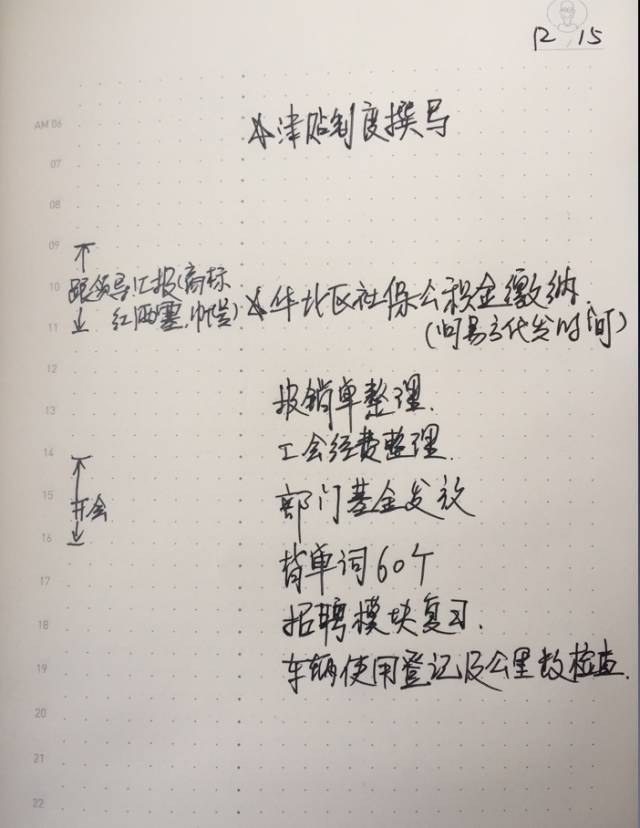 12 15
AM 06
☆津贴制度撰写
07
08
09
10
跟领导汇报(商标
☆华北区社保公积金缴纳.
红西塞,
11
(问易才代发时间)
12
报销单整理.
13
工会经费整理.
14
15
开会
部门基金发放
16
背单词60个
17
招聘模块复习.
18
车辆使用登记及公里数检查.
19
20
21
22